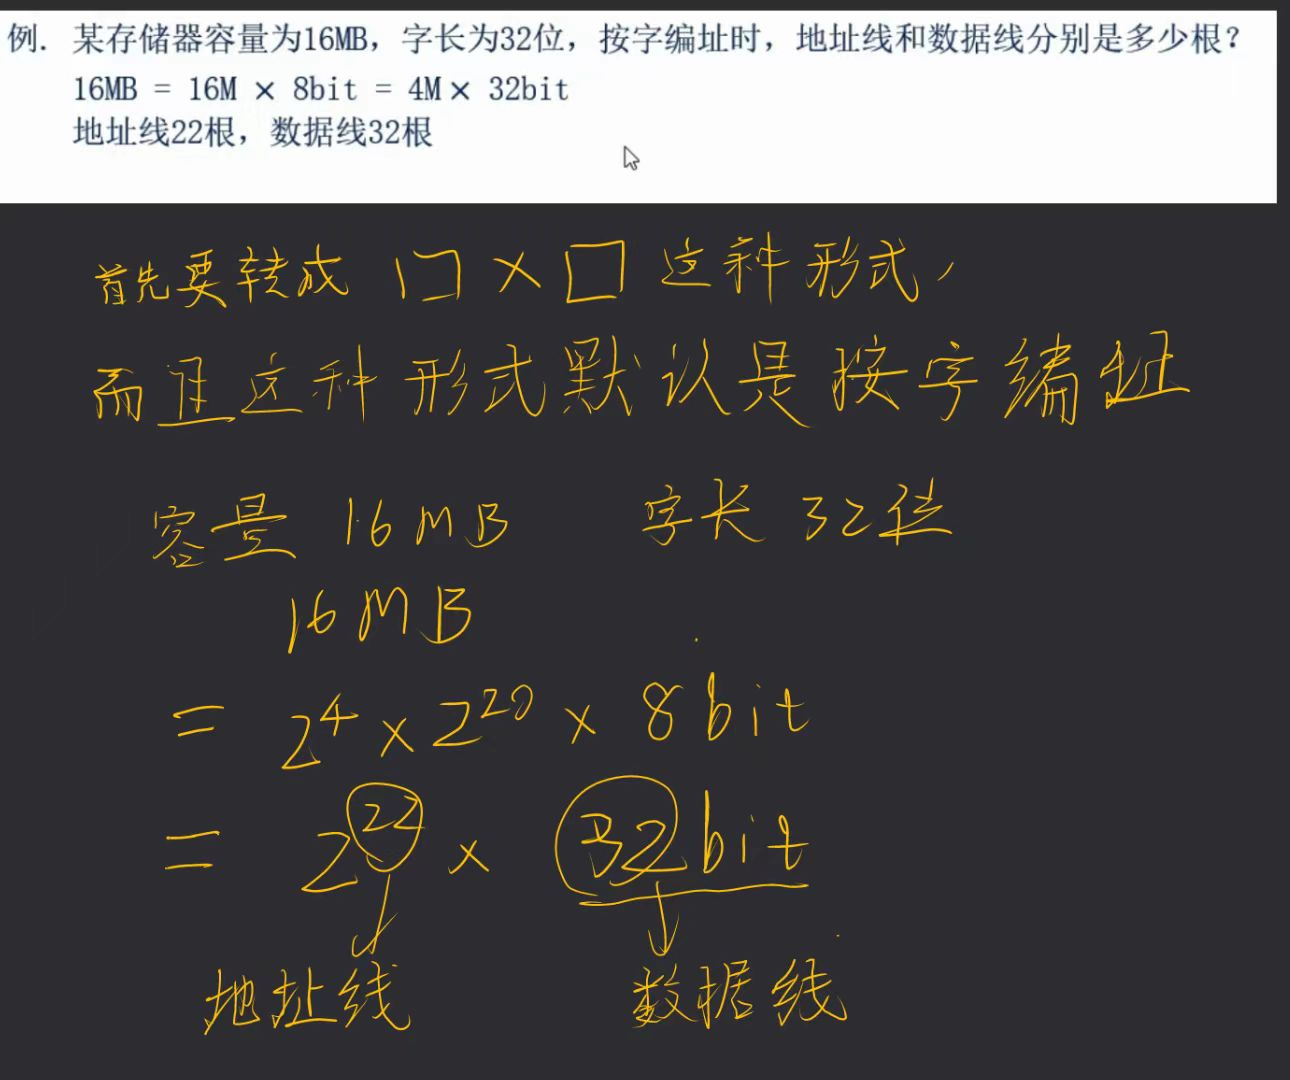 例. 某存储器容量为16MB，字长为32位，按字编址时，地址线和数据线分别是多少根？
16MB = 16M × 8bit = 4M× 32bit
地址线22根，数据线32根
首先要转成 口 × 口 这种形式，
而且这种形式默认是按字编址
容量 16MB 字长 32位
16MB
= 2⁴ × 2²⁰ × 8bit
= 2²² × 32bit
地址线 数据线